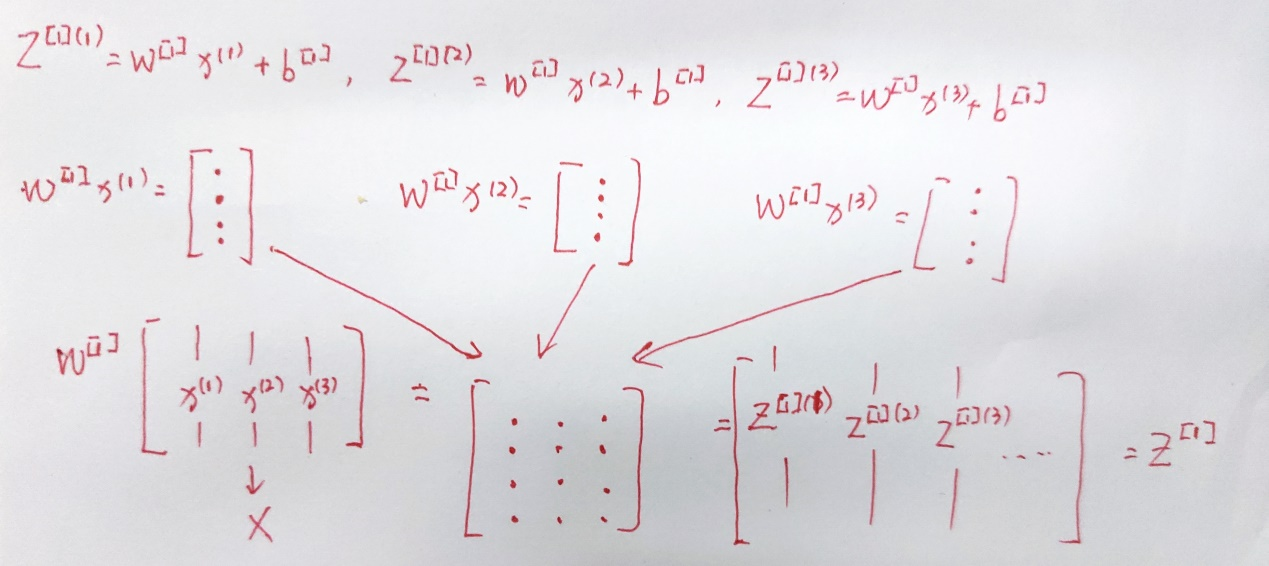 Z[1](1) = W[1] x(1) + b[1], Z[1](2) = W[1] x(2) + b[1], Z[1](3) = W[1] x(3) + b[1]
W[1] x(1) = [⋮] W[1] x(2) = [⋮] W[1] x(3) = [⋮]
W[1] [x(1) x(2) x(3)] = [⋮ ⋮ ⋮] = [Z[1](1) Z[1](2) Z[1](3) ....] = Z[1]
X